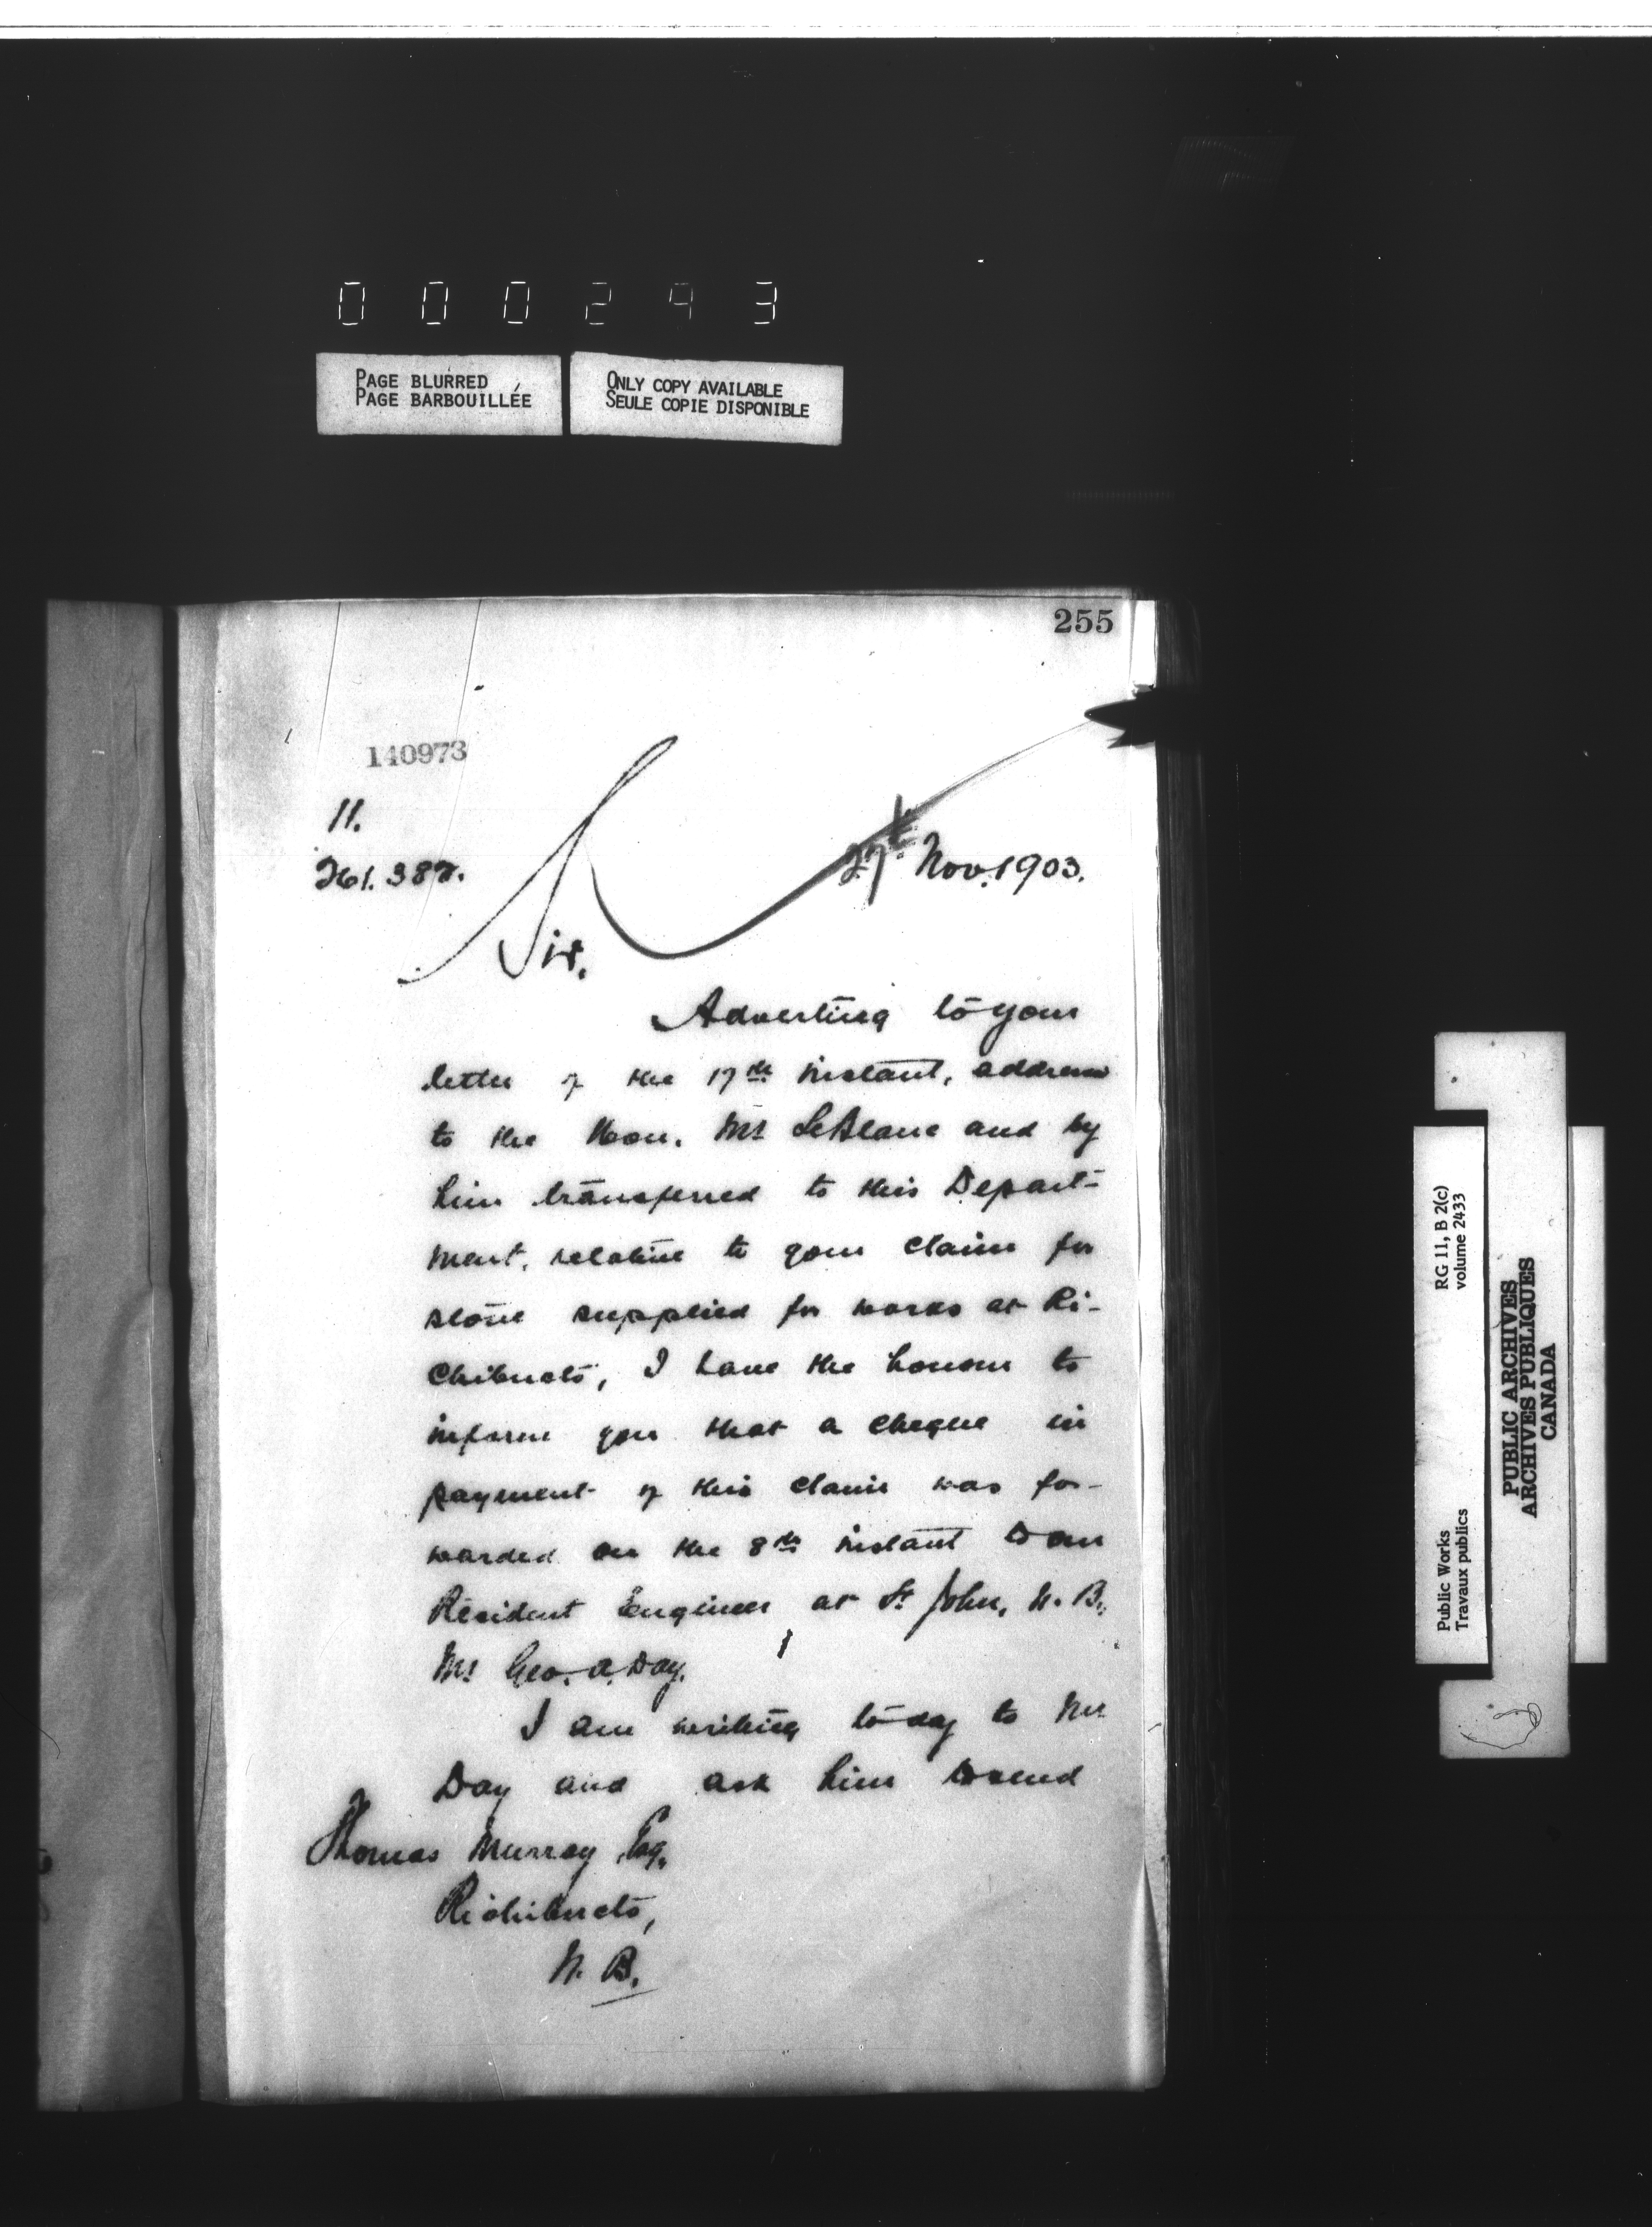 000243
PAGE BLURRED
PAGE BARBOUILLÉE
ONLY COPY AVAILABLE
SEULE COPIE DISPONIBLE
255
140973
11.
27th Nov. 1903.
Sir,
Adverting to your
letter of the 17th instant, addressed
to the Hon. Mr LeBlanc and by
him transferred to this Depart-
ment, relative to your claim for
stone supplied for works at Ri-
chibucto, I have the honour to
inform you that a cheque in
payment of this claim was for-
warded on the 8th instant to our
Resident Engineer at St John, N. B.,
Mr Geo. A. Day.
I am writing to-day to Mr
Day and ask him to send
Thomas Murray Esq.
Richibucto,
N. B.
Public Works
Travaux publics
RG 11, B 2(c)
volume 2433
PUBLIC ARCHIVES
ARCHIVES PUBLIQUES
CANADA